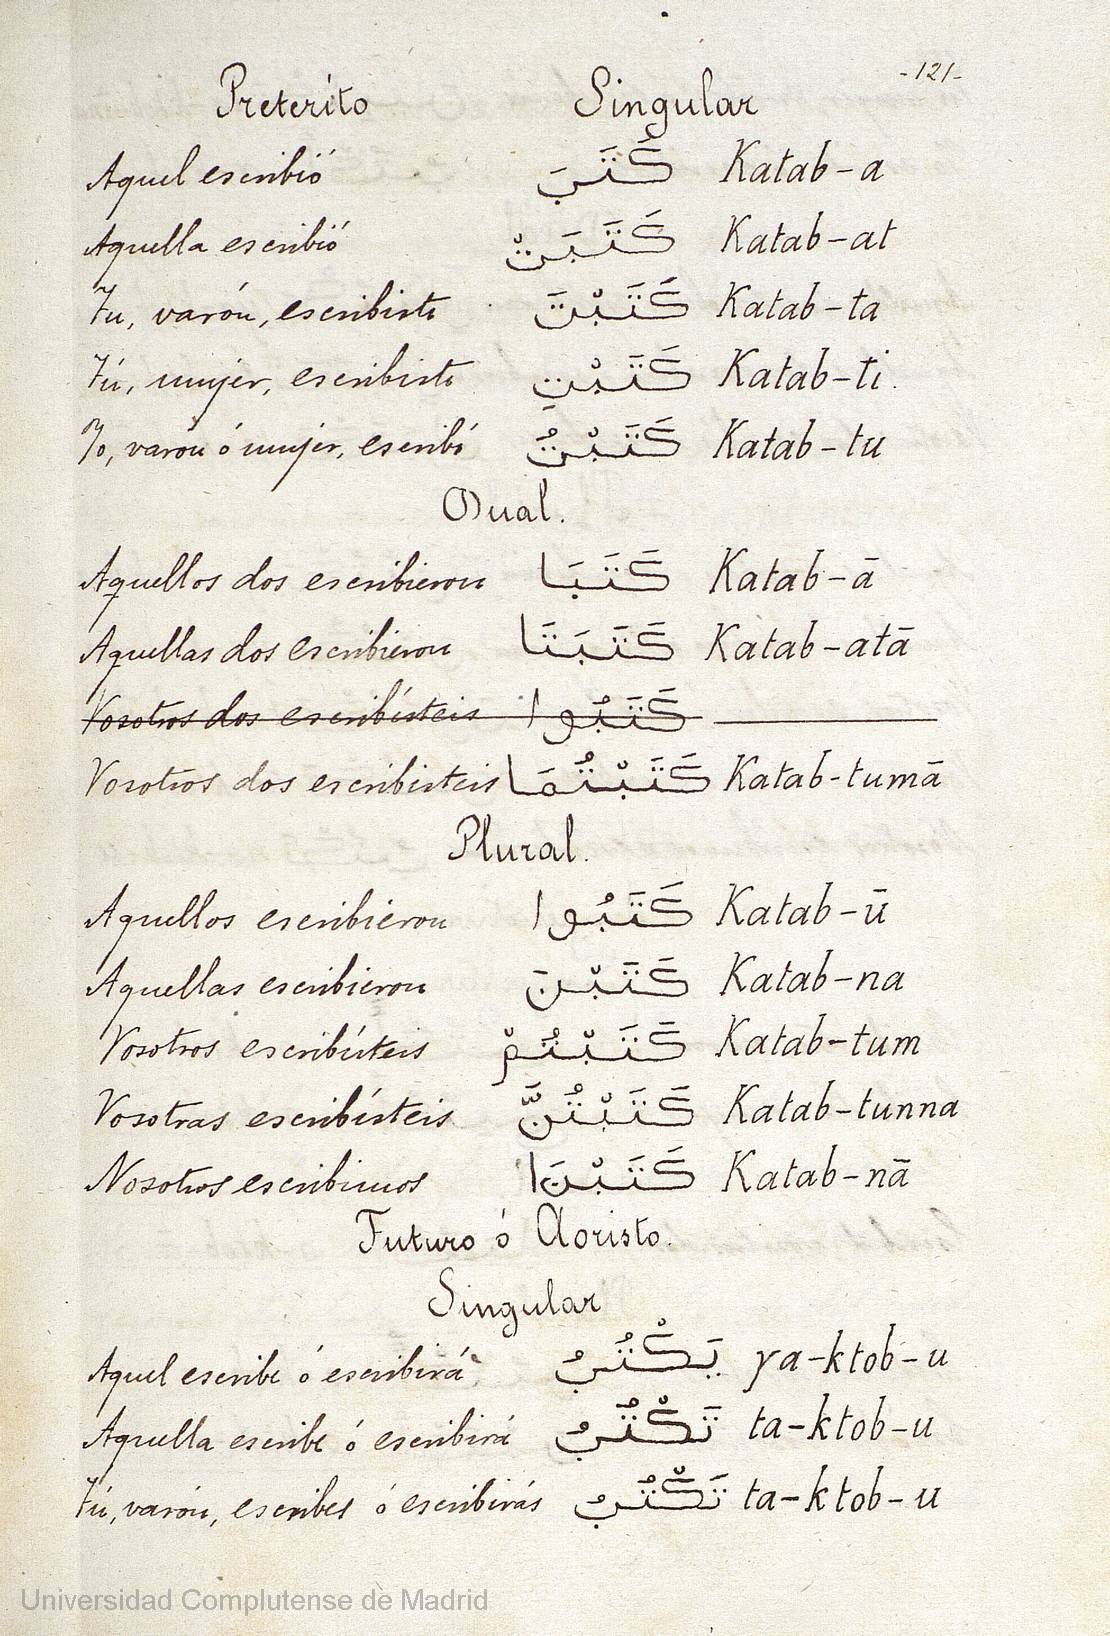 -121-
Preterito Singular
Aquel escribió كَتَبَ Katab-a
Aquella escribió كَتَبَتْ Katab-at
Tu, varón, escribiste كَتَبْتَ Katab-ta
Tú, mujer, escribiste كَتَبْتِ Katab-ti.
Yo, varón ó mujer, escribí كَتَبْتُ Katab-tu
Dual.
Aquellos dos escribieron كَتَبَا Katab-ā
Aquellas dos escribieron كَتَبَتَا Katab-atā
Vosotros dos escribísteis كَتَبُوا
Vosotros dos escribisteis كَتَبْتُمَا Katab-tumā
Plural.
Aquellos escribieron كَتَبُوا Katab-ū
Aquellas escribieron كَتَبْنَ Katab-na
Vosotros escribísteis كَتَبْتُمْ Katab-tum
Vosotras escribísteis كَتَبْتُنَّ Katab-tunna
Nosotros escribimos كَتَبْنَا Katab-nā
Futuro ó Aoristo.
Singular
Aquel escribe ó escribirá يَكْتُبُ ya-ktob-u
Aquella escribe ó escribirá تَكْتُبُ ta-ktob-u
Tú, varón, escribes ó escribirás تَكْتُبُ ta-ktob-u
Universidad Complutense de Madrid